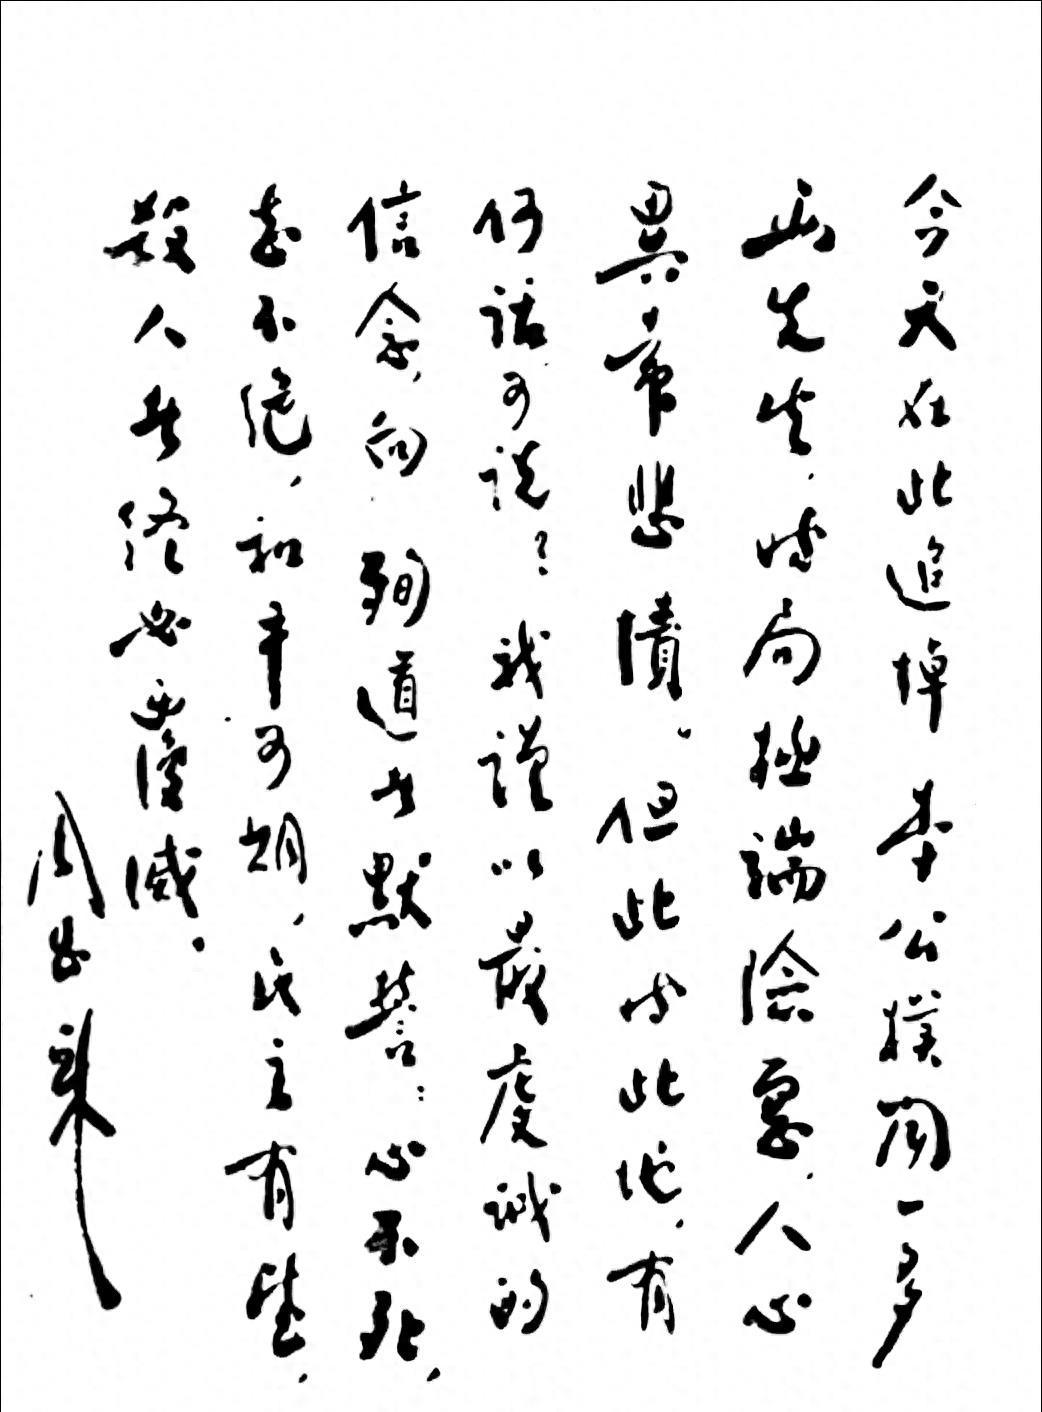 今天在此追悼李公樸闻一多
两先生，时局極端險惡，人心
異常悲憤。但此时此地，有
何話可说？我謹以最虔诚的
信念，向殉道者默誓：心不死，
志不绝，和平可期，民主有望，
殺人者终必覆滅。
周恩来